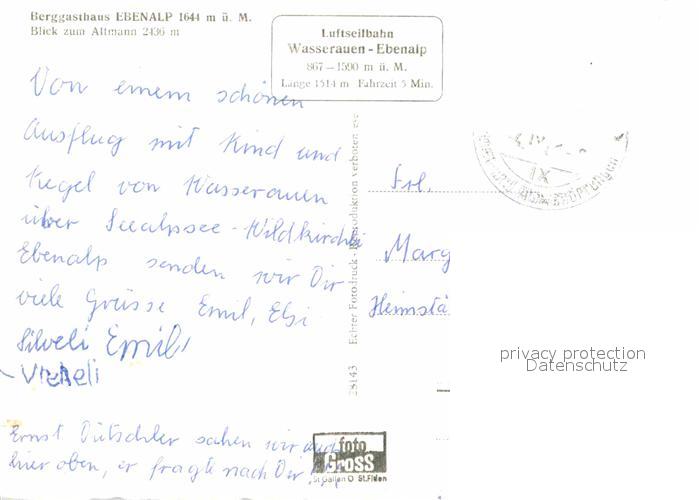 Berggasthaus EBENALP 1644 m ü. M.
Blick zum Altmann 2436 m
Luftseilbahn
Wasserauen - Ebenalp
867 – 1590 m ü. M.
Länge 1514 m Fahrzeit 5 Min.
Von einem schönen
Ausflug mit Kind und
Kegel von Wasserauen
über Seealpsee - Wildkirchli
Ebenalp senden wir Dir
viele Grüsse Emil, Elsi
Silveli Emil
Vreneli
Ernst Dütschler sahen wir auch
hier oben, er fragte nach Dir
Frl.
Marg
Heimstä
28143 Echter Fotodruck - Reproduktion verboten
foto
GROSS
St Gallen O St.Fiden
IX
privacy protection
Datenschutz